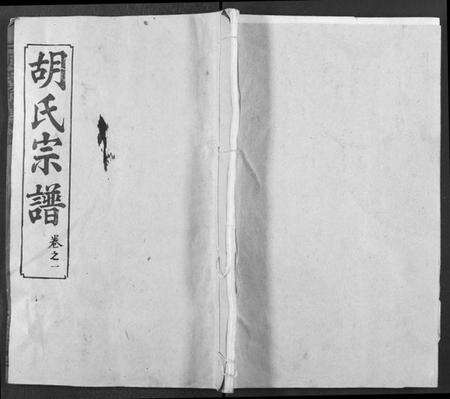 胡氏宗譜
卷之一